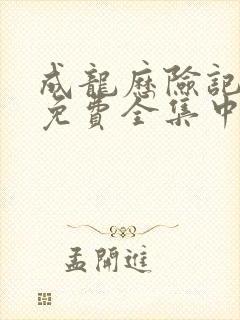 成龍歷險記
免費全集中
孟開進